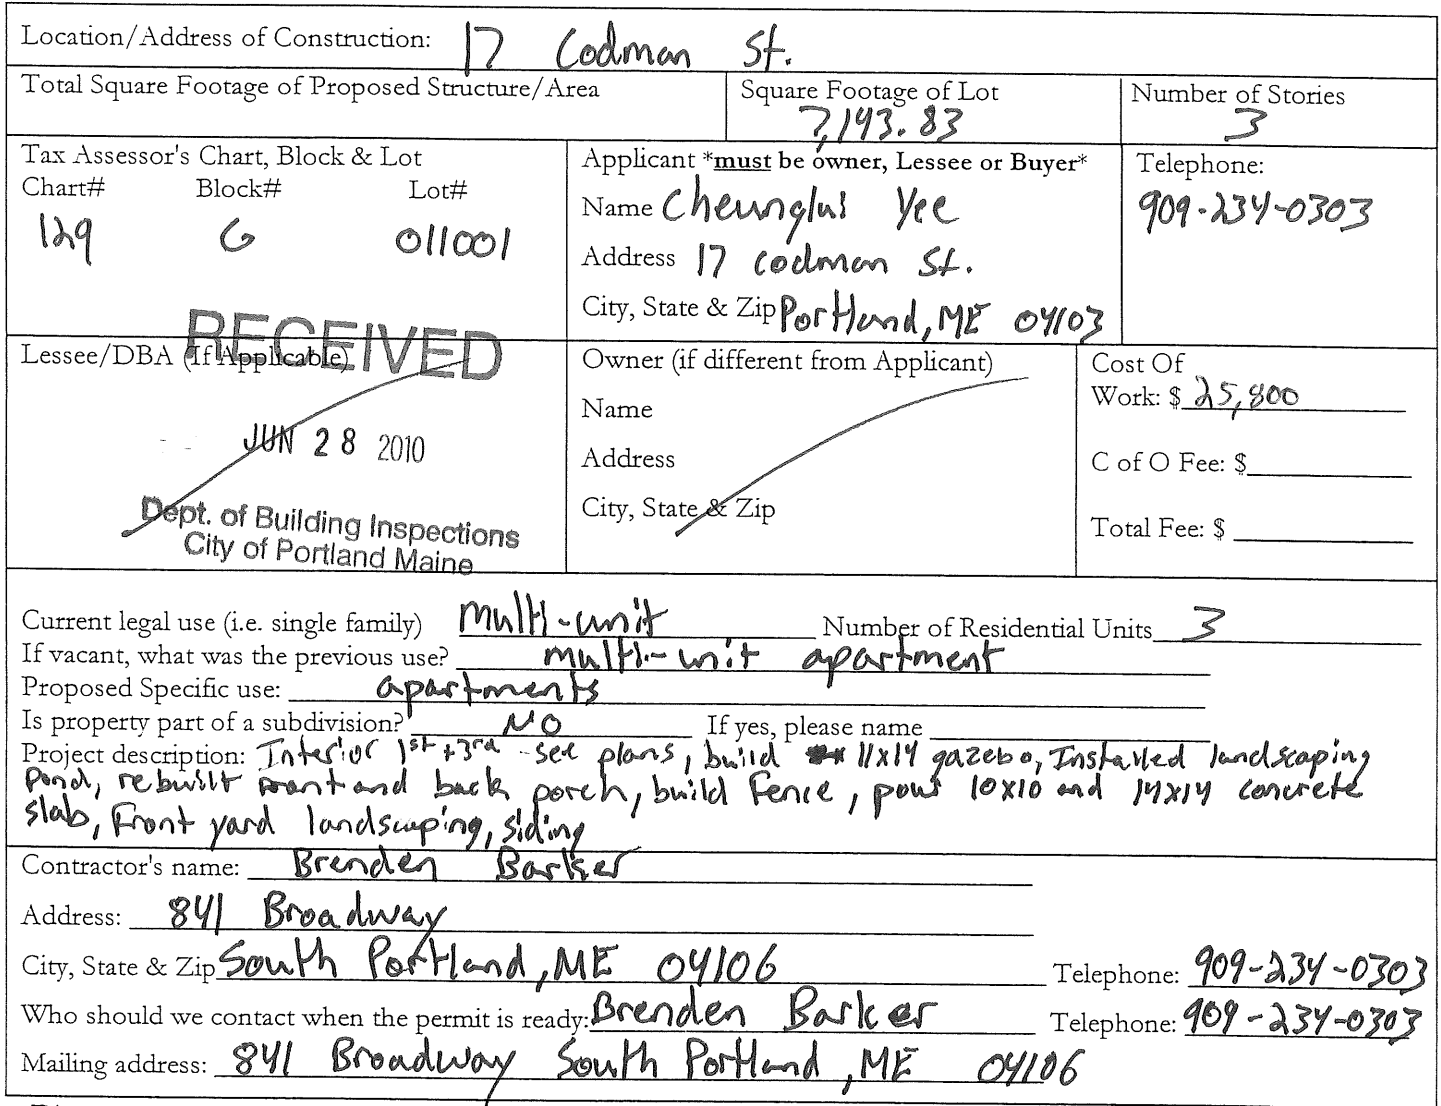 Location/Address of Construction: 17 Codman St.
Total Square Footage of Proposed Structure/Area
Square Footage of Lot
7,193.83
Number of Stories
3
Tax Assessor's Chart, Block & Lot
Chart# Block# Lot#
129 G 011001
Applicant *must be owner, Lessee or Buyer*
Name Cheunglui Yee
Address 17 codman St.
City, State & Zip Portland, ME 04103
Telephone:
909-234-0303
RECEIVED
Lessee/DBA (If Applicable)
JUN 28 2010
Dept. of Building Inspections
City of Portland Maine
Owner (if different from Applicant)
Name
Address
City, State & Zip
Cost Of
Work: $ 25,800
C of O Fee: $
Total Fee: $
Current legal use (i.e. single family) multi-unit Number of Residential Units 3
If vacant, what was the previous use? multi-unit apartment
Proposed Specific use: apartments
Is property part of a subdivision? NO If yes, please name
Project description: Interior 1st + 3rd - see plans, build 11x14 gazebo, Installed landscaping
pond, rebuilt front and back porch, build fence, pour 10x10 and 14x14 concrete
slab, Front yard landscaping, siding
Contractor's name: Brenden Barker
Address: 841 Broadway
City, State & Zip South Portland, ME 04106 Telephone: 909-234-0303
Who should we contact when the permit is ready: Brenden Barker Telephone: 909-234-0303
Mailing address: 841 Broadway South Portland, ME 04106